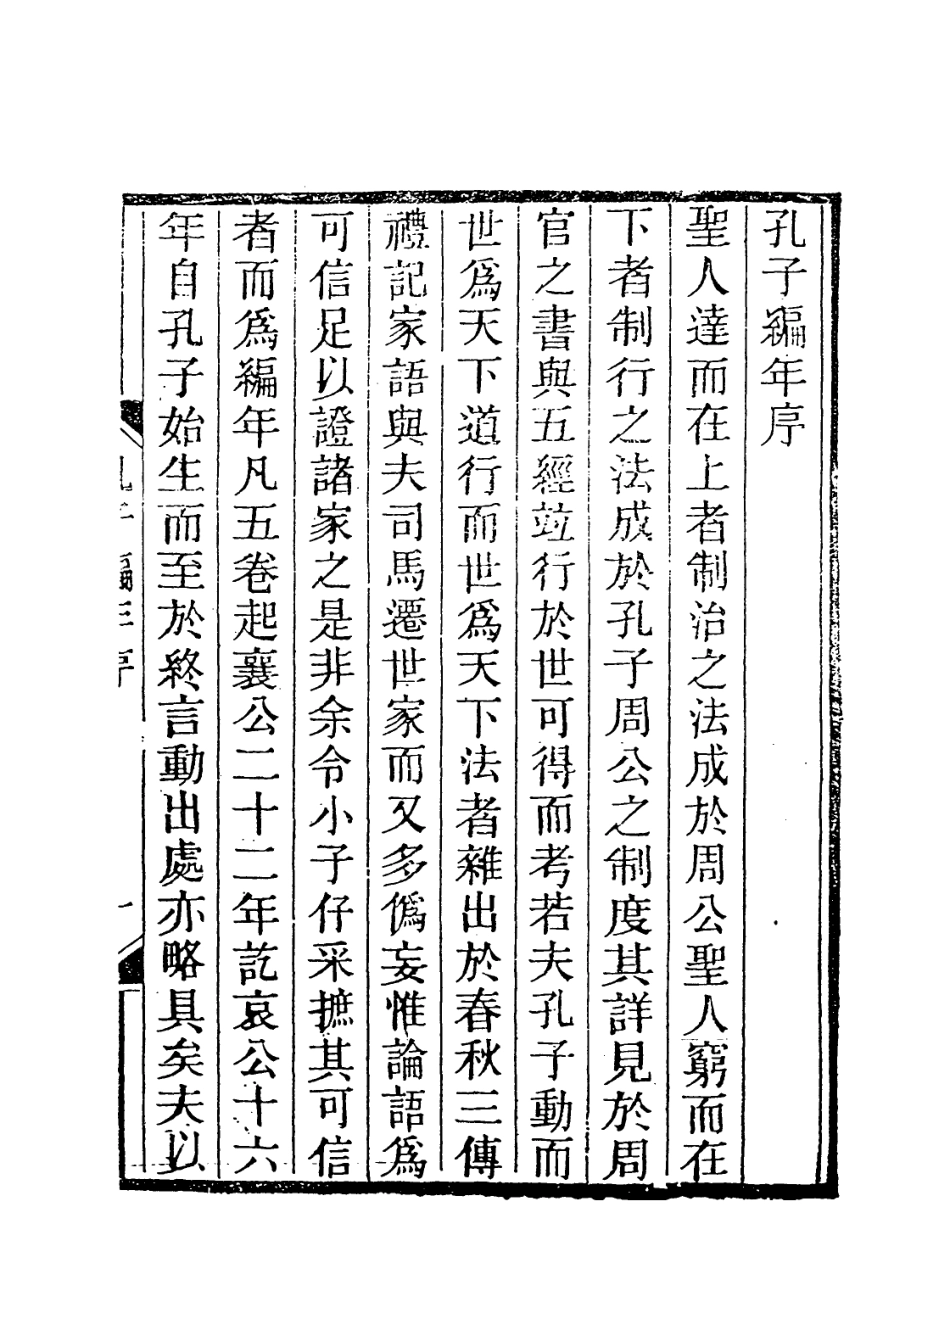 孔子編年序
聖人達而在上者制治之法成於周公聖人窮而在
下者制行之法成於孔子周公之制度其詳見於周
官之書與五經竝行於世可得而考若夫孔子動而
世爲天下道行而世爲天下法者雜出於春秋三傳
禮記家語與夫司馬遷世家而又多僞妄惟論語爲
可信足以證諸家之是非余令小子仔采摭其可信
者而爲編年凡五卷起襄公二十二年訖哀公十六
年自孔子始生而至於終言動出處亦略具矣夫以